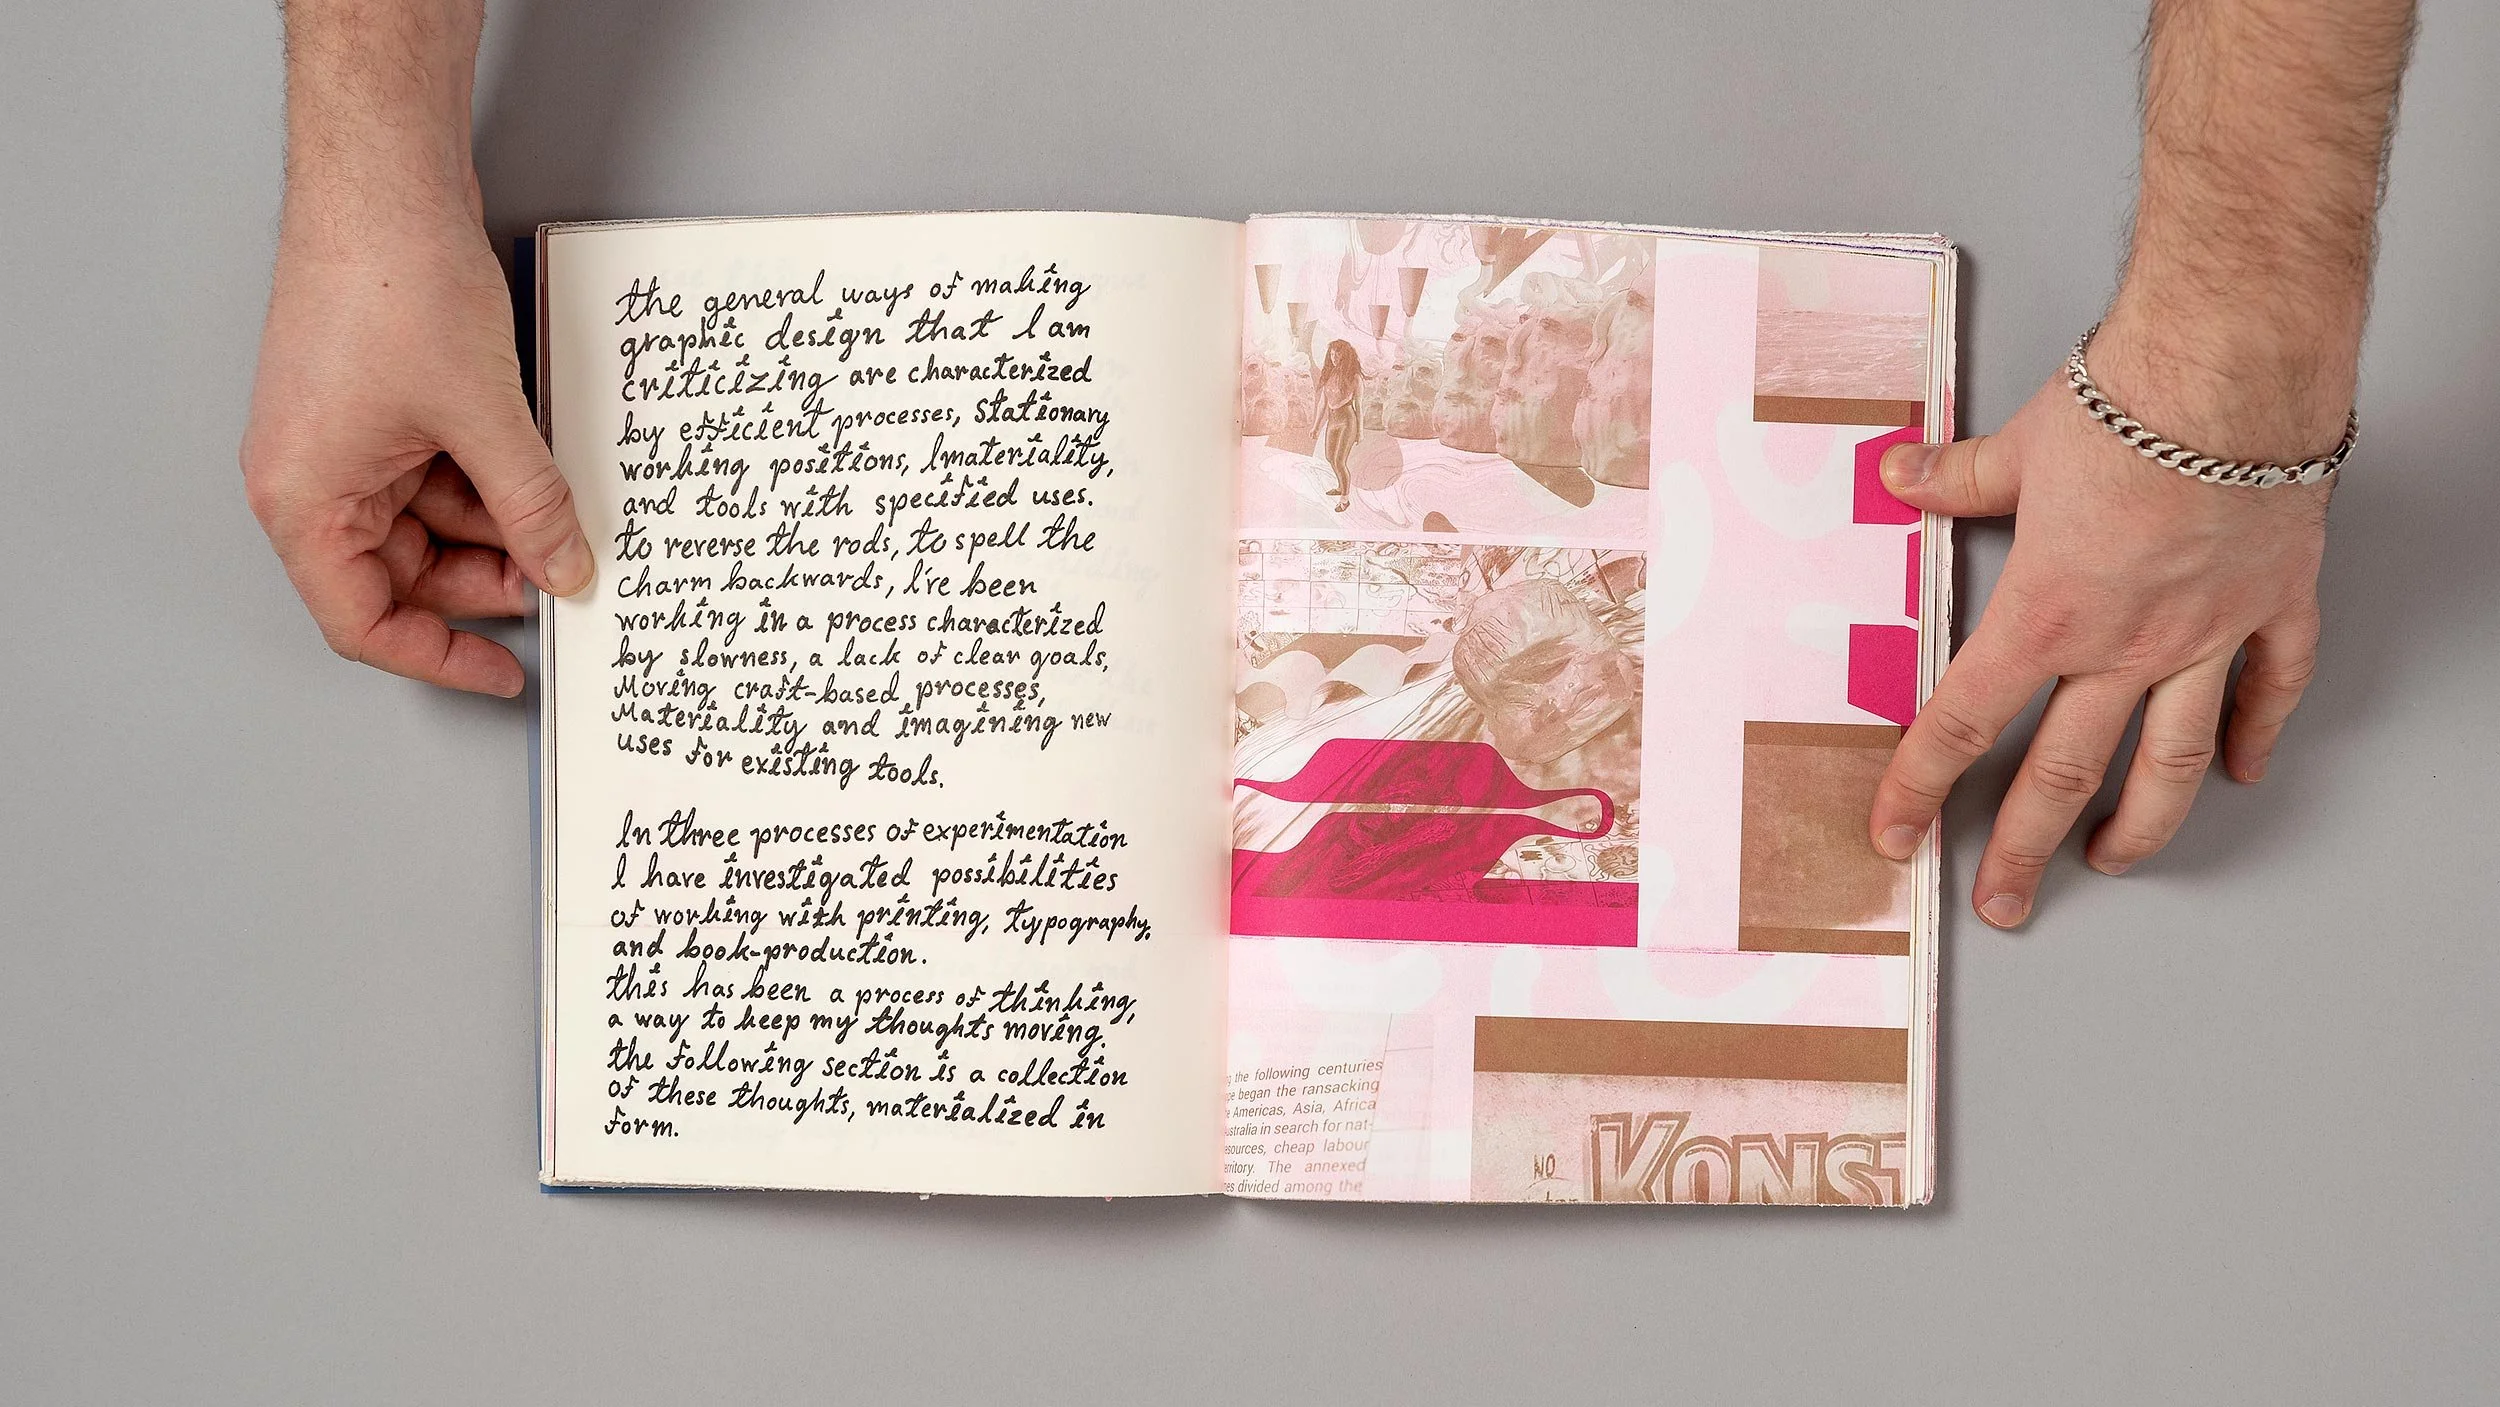 the general ways of making
graphic design that I am
criticizing are characterized
by efficient processes, Stationary
working positions, Immateriality,
and tools with specified uses.
to reverse the rods, to spell the
charm backwards, I've been
working in a process characterized
by slowness, a lack of clear goals,
Moving craft-based processes,
Materiality and imagining new
uses for existing tools.
In three processes of experimentation
I have investigated possibilities
of working with printing, typography,
and book-production.
this has been a process of thinking,
a way to keep my thoughts moving.
the following section is a collection
of these thoughts, materialized in
form.
the following centuries
began the ransacking
Americas, Asia, Africa
in search for nat-
cheap labour
The annexed
divided among the
NO
KONST